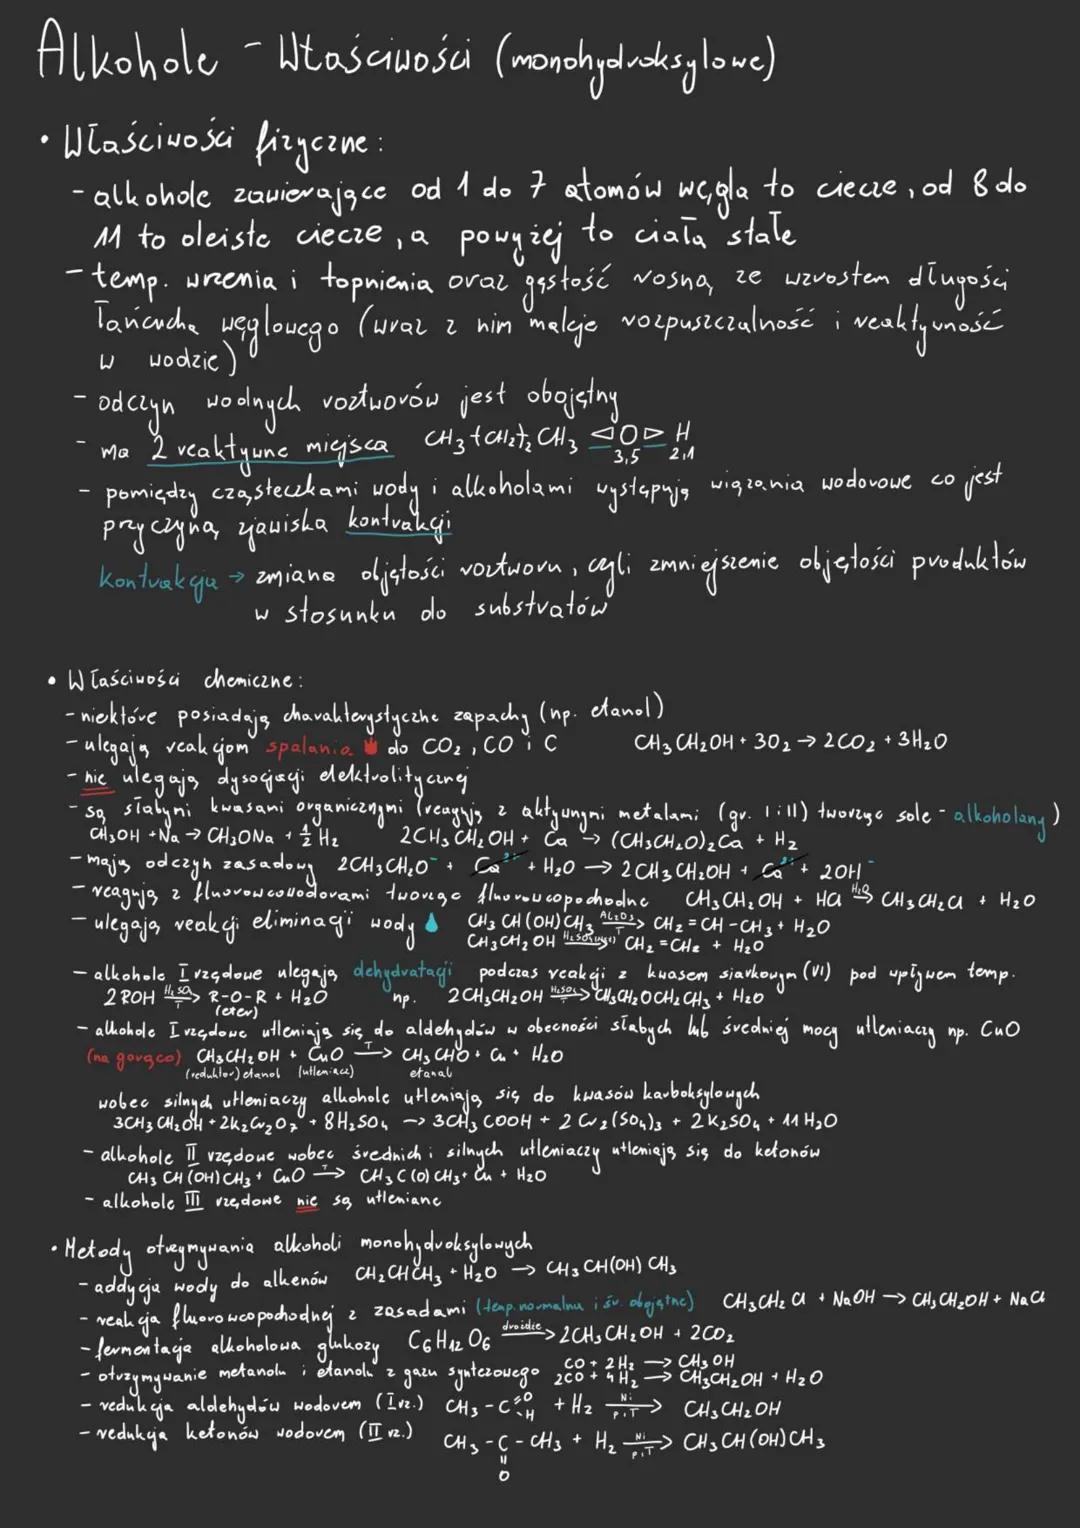 Alkohole - Właściwości (monohydroksylowe)
• Właściwości fizyczne:
- alkohole zawierające od 1 do 7 atomów węgla to ciecze, od 8 do
11 to oleiste ciecze, a powyżej to ciała stałe
- temp. wrzenia i topnienia oraz gęstość rosną ze wzrostem długości
łańcucha węglowego (wraz z nim maleje rozpuszczalność i reaktywność
w wodzie)
- odczyn wodnych roztworów jest obojętny
- ma 2 reaktywne miejsca CH3-(CH2)2-CH3 ◁O▷ H
3,5 2,1
- pomiędzy cząsteczkami wody i alkoholami występują wiązania wodorowe co jest
przyczyną zjawiska kontrakcji
kontrakcja → zmiana objętości roztworu, czyli zmniejszenie objętości produktów
w stosunku do substratów
• Właściwości chemiczne:
- niektóre posiadają charakterystyczne zapachy (np. etanol)
- ulegają reakcjom spalania do CO2, CO i C CH3CH2OH + 3O2 → 2CO2 + 3H2O
- nie ulegają dysocjacji elektrolitycznej
- są słabymi kwasami organicznymi (reagują z aktywnymi metalami (gr. I i II) tworząc sole - alkoholany)
CH3OH + Na → CH3ONa + 1/2 H2 2CH3CH2OH + Ca → (CH3CH2O)2Ca + H2
- mają odczyn zasadowy 2CH3CH2O⁻ + Ca²⁺ + H2O → 2CH3CH2OH + Ca²⁺ + 2OH⁻
- reagują z fluorowcowodorami tworząc fluorowcopochodne CH3CH2OH + HCl H2O→ CH3CH2Cl + H2O
- ulegają reakcji eliminacji wody CH3CH(OH)CH3 Al2O3/T→ CH2=CH-CH3 + H2O
CH3CH2OH H2SO4(stęż)→ CH2=CH2 + H2O
- alkohole I rzędowe ulegają dehydratacji podczas reakcji z kwasem siarkowym (VI) pod wpływem temp.
2ROH H2SO4/T→ R-O-R + H2O np. 2CH3CH2OH H2SO4/T→ CH3CH2OCH2CH3 + H2O
(eter)
- alkohole I rzędowe utleniają się do aldehydów w obecności słabych lub średniej mocy utleniaczy np. CuO
(na gorąco) CH3CH2OH + CuO T→ CH3CHO + Cu + H2O
(reduktor) etanol (utleniacz) etanal
wobec silnych utleniaczy alkohole utleniają się do kwasów karboksylowych
3CH3CH2OH + 2K2Cr2O7 + 8H2SO4 → 3CH3COOH + 2Cr2(SO4)3 + 2K2SO4 + 11H2O
- alkohole II rzędowe wobec średnich i silnych utleniaczy utleniają się do ketonów
CH3CH(OH)CH3 + CuO T→ CH3C(O)CH3 + Cu + H2O
- alkohole III rzędowe nie są utleniane
• Metody otrzymywania alkoholi monohydroksylowych
- addycja wody do alkenów CH2CHCH3 + H2O → CH3CH(OH)CH3
- reakcja fluorowcopochodnej z zasadami (temp. normalna i śr. obojętne) CH3CH2Cl + NaOH → CH3CH2OH + NaCl
- fermentacja alkoholowa glukozy C6H12O6 drożdże→ 2CH3CH2OH + 2CO2
- otrzymywanie metanolu i etanolu z gazu syntezowego CO + 2H2 → CH3OH
2CO + 4H2 → CH3CH2OH + H2O
- redukcja aldehydów wodorem (I rz.) CH3-C=O-H + H2 Ni/p,T→ CH3CH2OH
- redukcja ketonów wodorem (II rz.) CH3-C-CH3 + H2 Ni/p,T→ CH3CH(OH)CH3
O